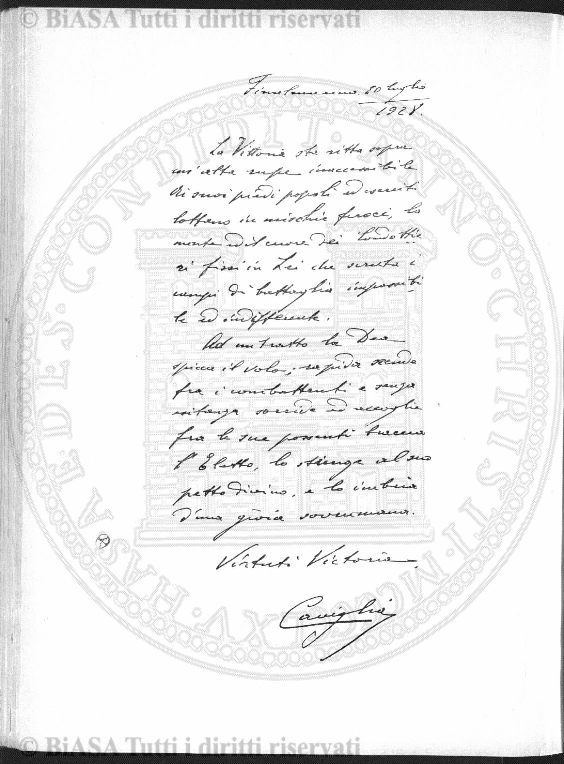 © BiASA Tutti i diritti riservati
Finalmarina 30 luglio
1928.
La Vittoria sta ritta sopra
un'alta rupe inaccessibile
Ai suoi piedi popoli ed eserciti
lottano in mischie feroci, la
mente ed il cuore dei Condottie
ri fissi in Lei che scruta i
campi di battaglia impassibi
le ed indifferente.
Ad un tratto la Dea
spicca il volo, rapida scende
fra i combattenti e senza
esitanza sorride ed accoglie
fra le sue possenti braccia
l'Eletto, lo stringe al suo
petto divino, e lo imbeia
d'una gioia sovrumana.
Virtuti Victoria.
Caviglia
AEDES CONDIDIT ANNO CHRISTI
© BiASA Tutti i diritti riservati